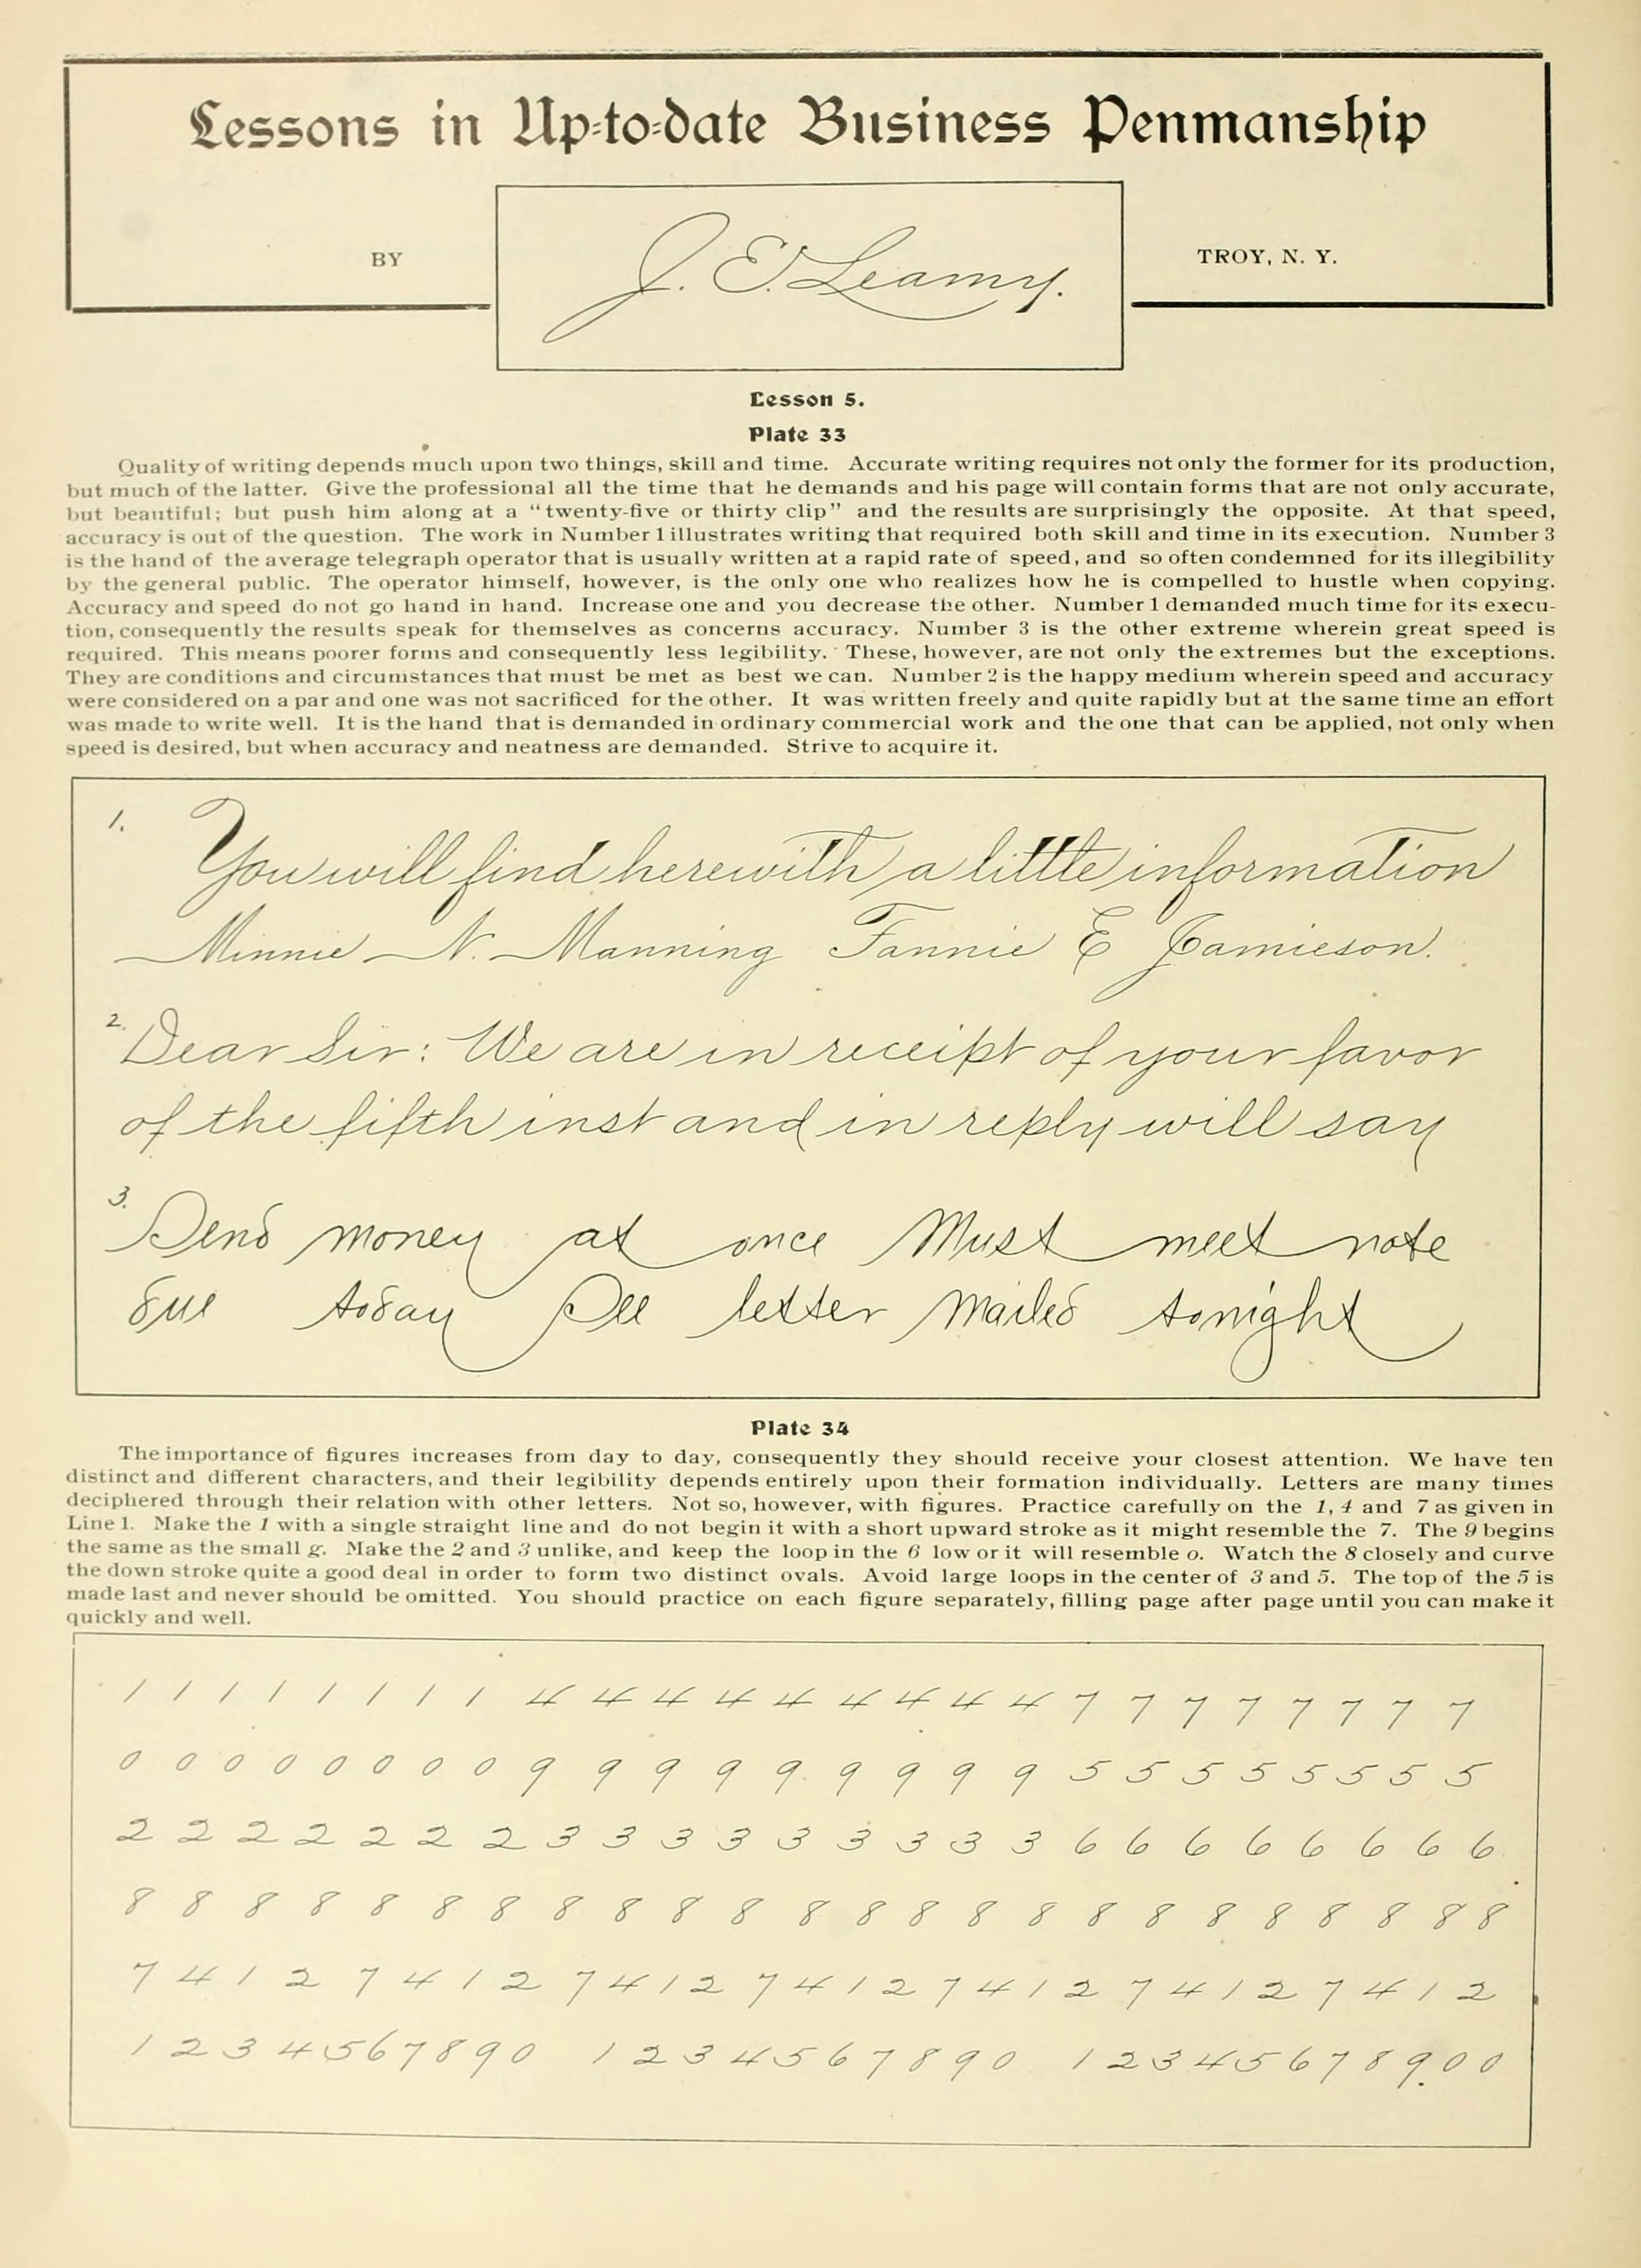 Lessons in Up-to-date Business Penmanship
BY
J. E. Leamy.
TROY, N. Y.
Lesson 5.
Plate 33
Quality of writing depends much upon two things, skill and time. Accurate writing requires not only the former for its production,
but much of the latter. Give the professional all the time that he demands and his page will contain forms that are not only accurate,
but beautiful; but push him along at a "twenty-five or thirty clip" and the results are surprisingly the opposite. At that speed,
accuracy is out of the question. The work in Number 1 illustrates writing that required both skill and time in its execution. Number 3
is the hand of the average telegraph operator that is usually written at a rapid rate of speed, and so often condemned for its illegibility
by the general public. The operator himself, however, is the only one who realizes how he is compelled to hustle when copying.
Accuracy and speed do not go hand in hand. Increase one and you decrease the other. Number 1 demanded much time for its execu-
tion, consequently the results speak for themselves as concerns accuracy. Number 3 is the other extreme wherein great speed is
required. This means poorer forms and consequently less legibility. These, however, are not only the extremes but the exceptions.
They are conditions and circumstances that must be met as best we can. Number 2 is the happy medium wherein speed and accuracy
were considered on a par and one was not sacrificed for the other. It was written freely and quite rapidly but at the same time an effort
was made to write well. It is the hand that is demanded in ordinary commercial work and the one that can be applied, not only when
speed is desired, but when accuracy and neatness are demanded. Strive to acquire it.
1. You will find herewith a little information
Minnie N. Manning Fannie E Jamieson.
2. Dear Sir: We are in receipt of your favor
of the fifth inst and in reply will say
3. Send money at once Must meet note
due today See letter mailed tonight
Plate 34
The importance of figures increases from day to day, consequently they should receive your closest attention. We have ten
distinct and different characters, and their legibility depends entirely upon their formation individually. Letters are many times
deciphered through their relation with other letters. Not so, however, with figures. Practice carefully on the 1, 4 and 7 as given in
Line 1. Make the 1 with a single straight line and do not begin it with a short upward stroke as it might resemble the 7. The 9 begins
the same as the small g. Make the 2 and 3 unlike, and keep the loop in the 6 low or it will resemble o. Watch the 8 closely and curve
the down stroke quite a good deal in order to form two distinct ovals. Avoid large loops in the center of 3 and 5. The top of the 5 is
made last and never should be omitted. You should practice on each figure separately, filling page after page until you can make it
quickly and well.
1 1 1 1 1 1 1 1 4 4 4 4 4 4 4 4 4 7 7 7 7 7 7 7 7
0 0 0 0 0 0 0 0 9 9 9 9 9 9 9 9 9 5 5 5 5 5 5 5 5
2 2 2 2 2 2 2 3 3 3 3 3 3 3 3 3 6 6 6 6 6 6 6 6
8 8 8 8 8 8 8 8 8 8 8 8 8 8 8 8 8 8 8 8 8 8 8 8
7 4 1 2 7 4 1 2 7 4 1 2 7 4 1 2 7 4 1 2 7 4 1 2 7 4 1 2
1 2 3 4 5 6 7 8 9 0 1 2 3 4 5 6 7 8 9 0 1 2 3 4 5 6 7 8 9.0 0